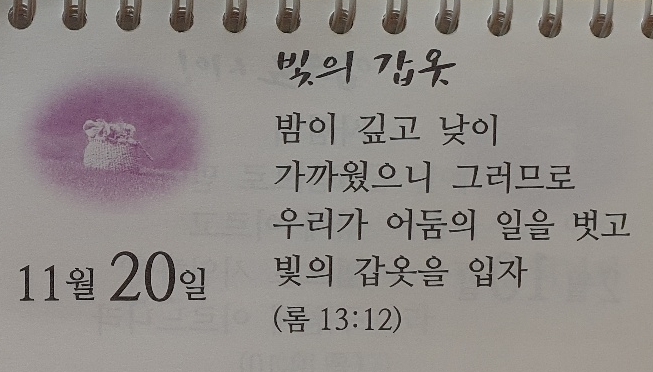 빛의 갑옷
밤이 깊고 낮이
가까웠으니 그러므로
우리가 어둠의 일을 벗고
빛의 갑옷을 입자
(롬 13:12)
11월 20일